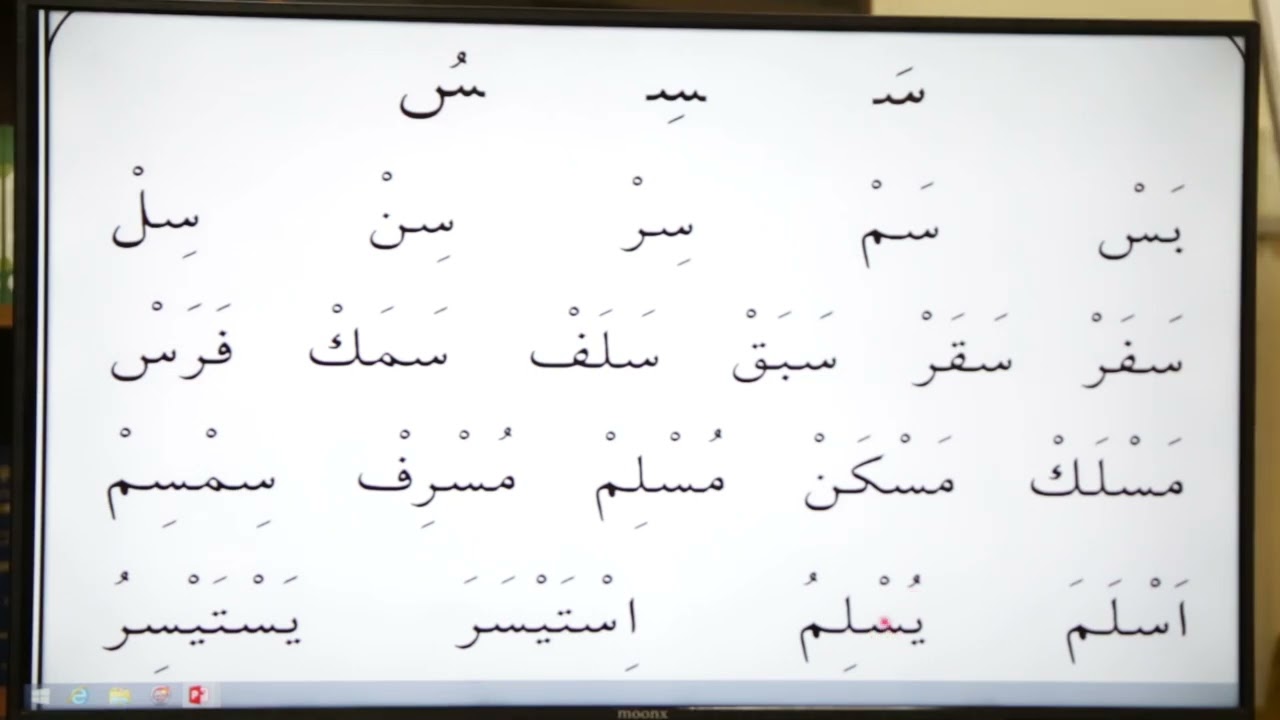 سَـ ـسِـ ـسُ
بَسْ سَمْ سِرْ سِنْ سِلْ
سَفَرْ سَقَرْ سَبَقْ سَلَفْ سَمَكْ فَرَسْ
مَسْلَكْ مَسْكَنْ مُسْلِمْ مُسْرِفْ سِمْسِمْ
اَسْلَمَ يُسْلِمُ اِسْتَيْسَرَ يَسْتَيْسِرُ
moonx